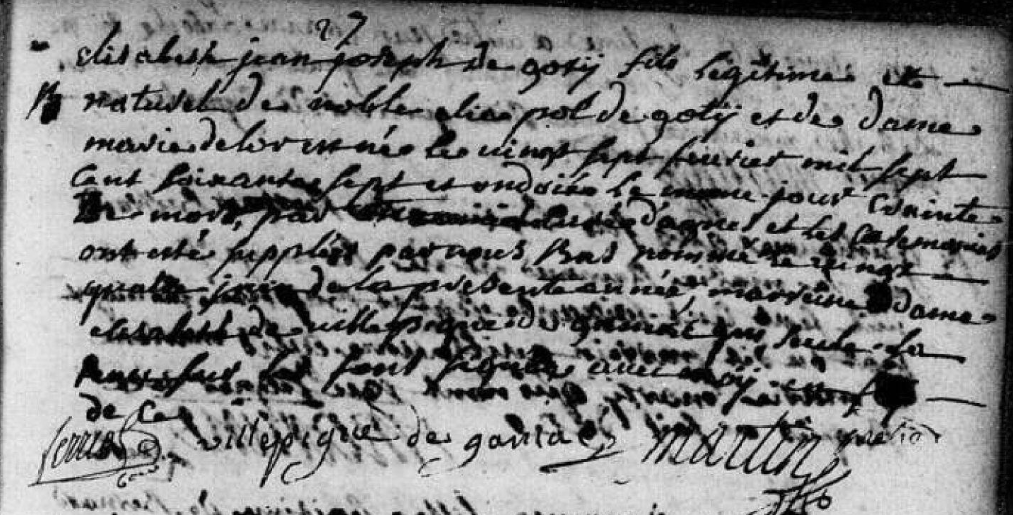 27
elisabeth jean joseph de gotÿ fils legitime et
naturel de noble elie pol de gotÿ et de dame
marie delor est né le vingt sept fevrier mil sept
cent soixante sept et ondoié le meme jour crainte
de mort, par et les ceremonies
ont esté supplées par nous bas nommé le vingt
quatre juin de la presente année, marreine dame
elisabeth de villepigue de qui seule la
sur les font signée avec moÿ en foÿ
de ce
villepigue de martin